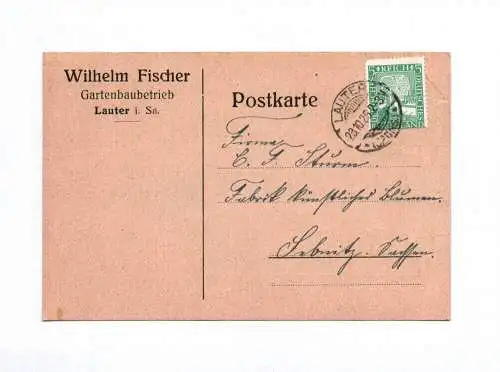 Wilhelm Fischer
Gartenbaubetrieb
Lauter i. Sa.
Postkarte
5 REICH 5
LAUTER
Firma
C. F. Sturm
Fabrik künstlicher Blumen
Sebnitz. Sachsen.